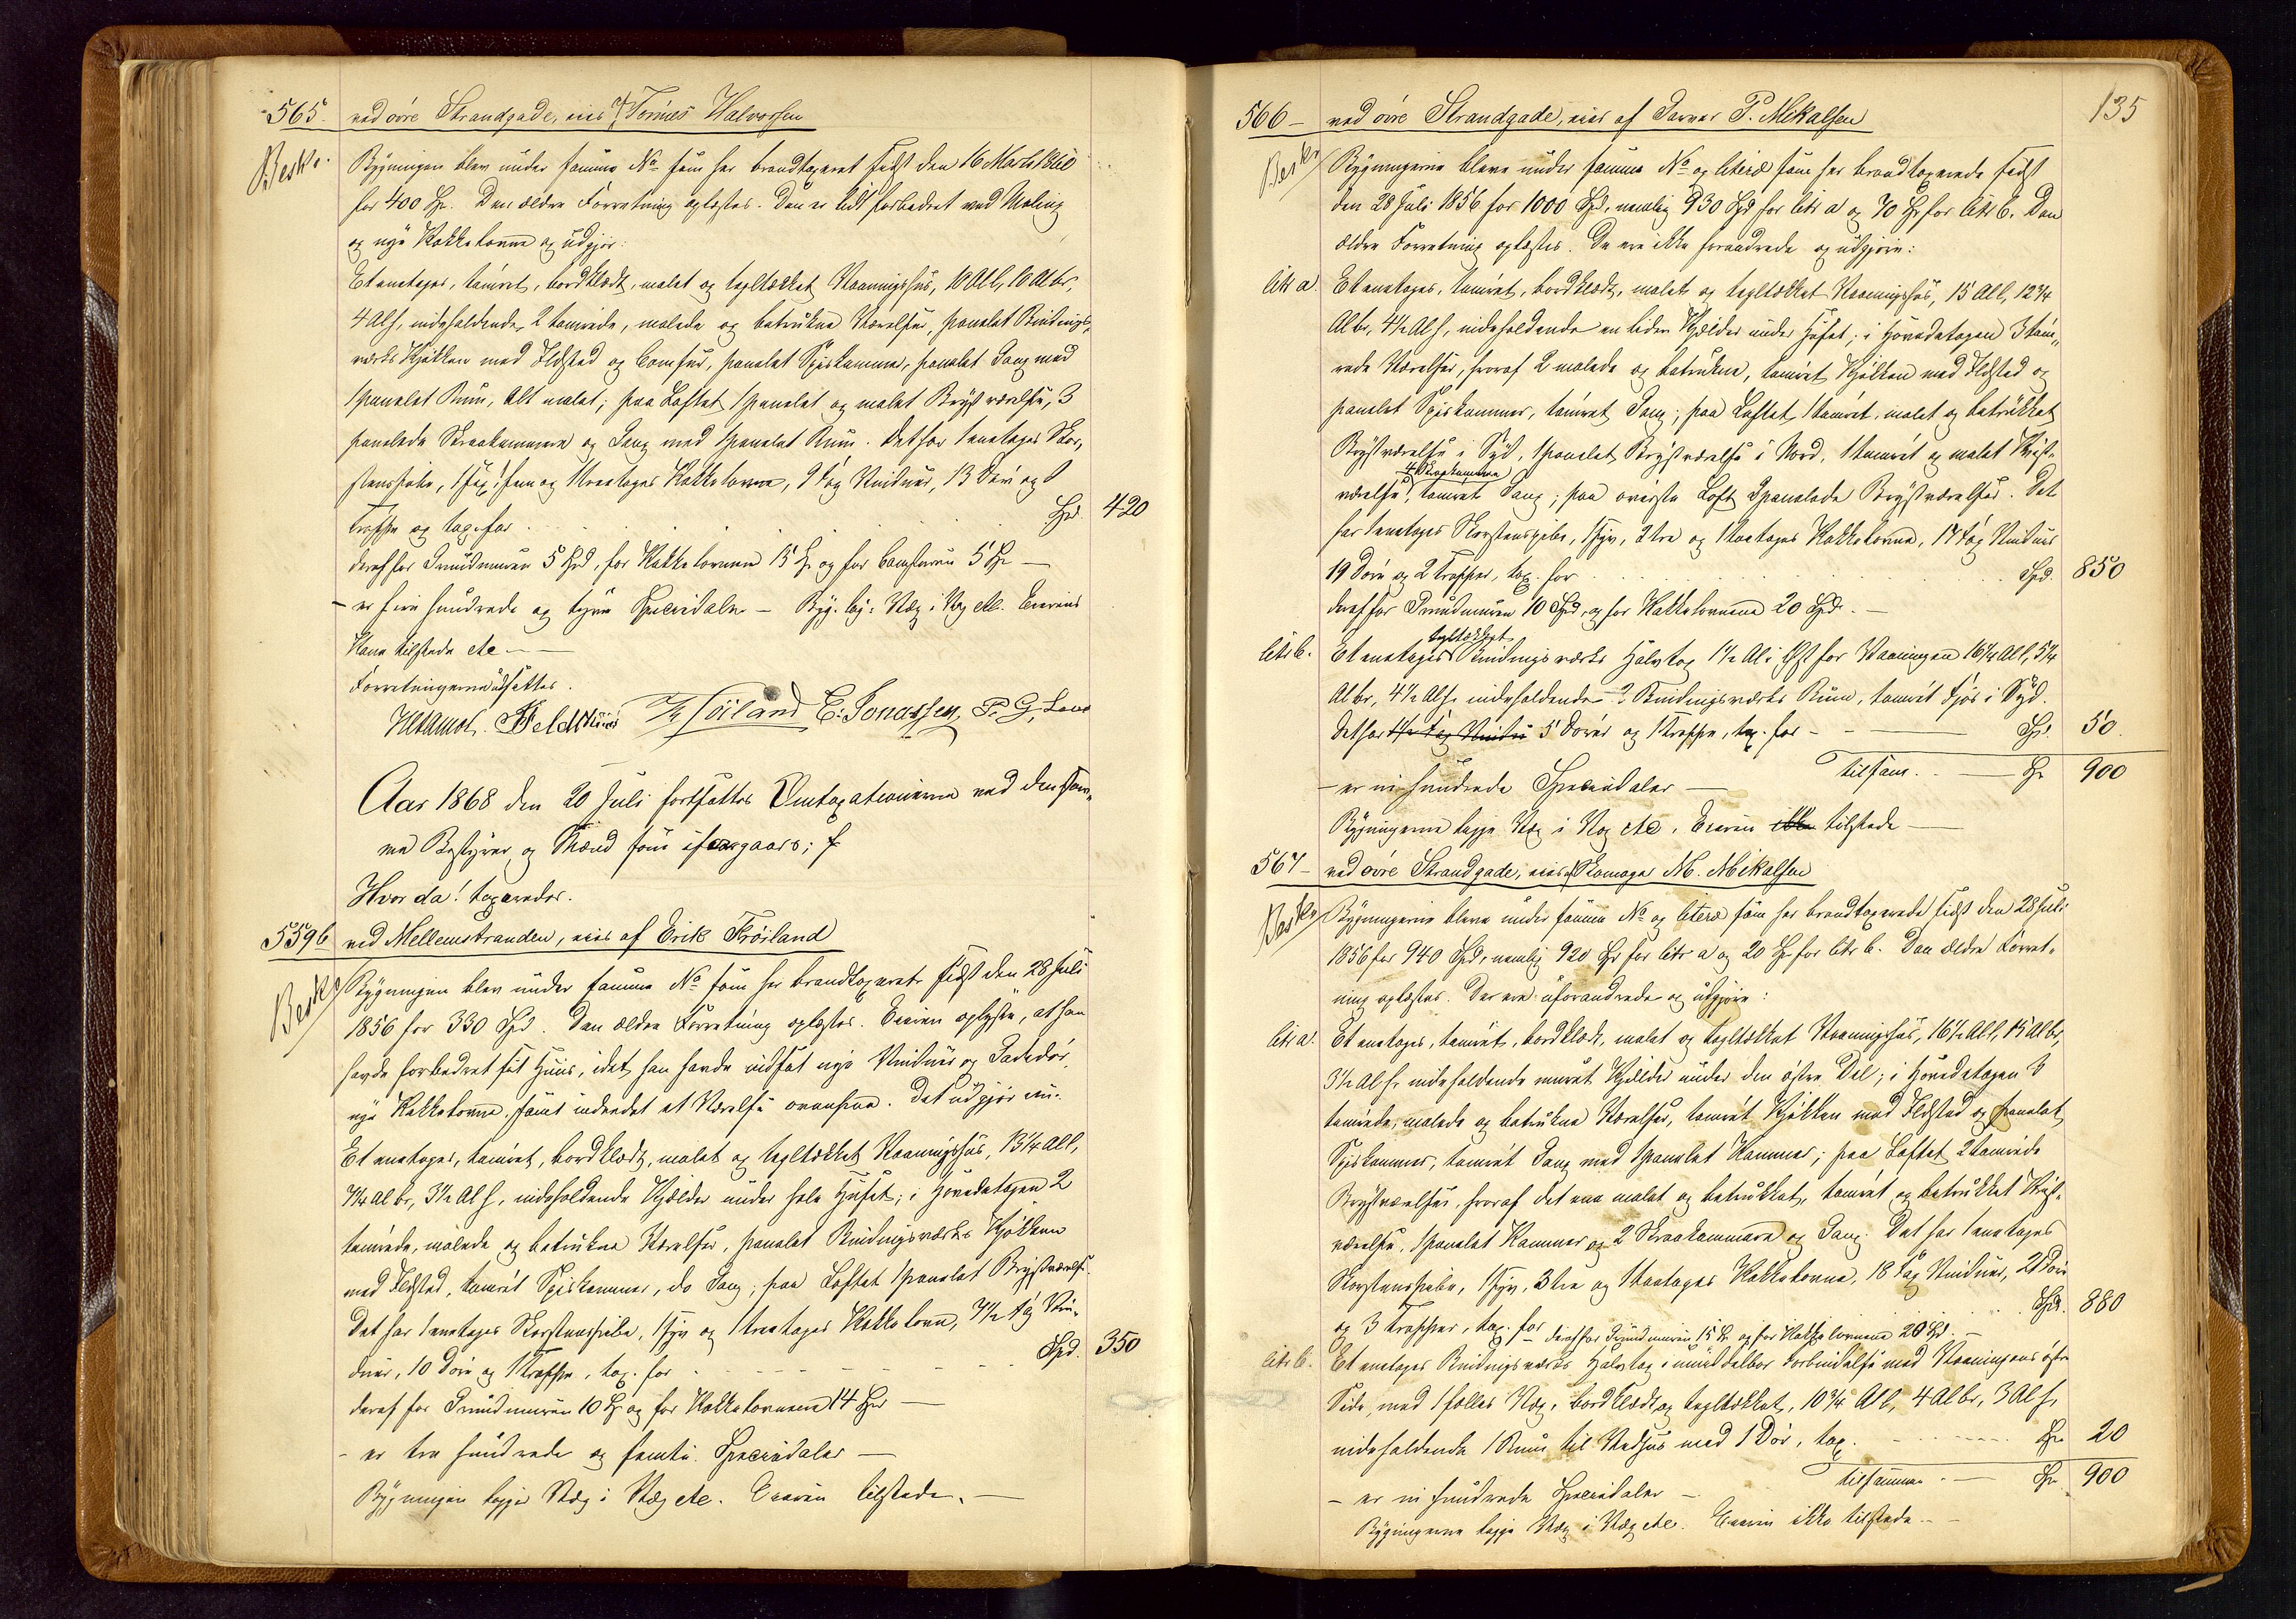 565. ved øvre Strandgade, eies af Tønnes Halvorsen
Beskr. Bygningen blev under samme No som her brandtaxeret sidst den 16 Marts 1860
for 400 Spd. Den ældre Forretning oplæstes. Den er lidt forbedret ved Maling
og nye Kakkelovne og udgjør:
Et enetages, tømret, bordklædt, malet og tegltækket Vaaningshus, 10 Al l, 10 Al br,
4 Al h, indeholdende 2 tømrede, malede og betrukne Værelser, panelet Bindings-
værks Kjøkken med Ildsted og Comfur, panelet Spiskammer, panelet Gang med
1 panelet Rum, Alt malet; paa Loftet 1 panelet og malet Kvistværelse, 3
panelede Skraakammere og Gang med 1 panelet Rum. Det har 1 enetages Skor-
stenspibe, 1 sex, 1 fem og 1 treetages Kakkelovne, 9 Fag Vinduer, 13 Døre og 1
Trappe og tax. for Spd. 420
deraf for Grundmuren 5 Spd, for Kakkelovnene 15 Spd og for Comfuren 5 Spd —
– er fire hundrede og tyve Speciedaler – Byg. byg: Væg i Væg etc. Eierens
Kone tilstede etc –
Forretningerne udsattes.
Feldtmann Høiland E. Jonassen P. G. Lund
Aar 1868 den 20 Juli fortsattes Omtaxationerne ved den sam-
me Bestyrer og Mænd som iforgaars;
Hvor da! taxeredes.
559b ved Mellemstranden, eies af Erik Frøiland
Beskr Bygningen blev under samme No som her brandtaxeret sidst den 28 Juli
1856 for 330 Spd. Den ældre Forretning oplæstes. Eieren oplyste, at han
havde forbedret sit Huus, idet han havde indsat nye Vinduer og Gadedør,
nye Kakkelovne, samt indredet et Værelse ovenpaa. Det udgjør nu:
Et enetages, tømret, bordklædt, malet og tegltækket Vaaningshus, 13 1/4 Al l,
7 1/4 Al br, 3 1/2 Al h, indeholdende Kjælder under hele Huset; i Hovedetagen 2
tømrede, malede og betrukne Værelser, panelet Bindingsværks Kjøkken
med Ildsted, tømret Spiskammer, do Gang; paa Loftet 1 panelet Kvistværelse.
Det har 1 enetages Skorstenspibe, 1 fyr og 1 treetages Kakkelovn, 7 1/2 Fag Vin-
duer, 10 Døre og 1 Trappe, tax. for Spd. 350
deraf for Grundmuren 10 Spd og for Kakkelovnene 14 Spd —
– er tre hundrede og femti Speciedaler —
Bygningen bygge Væg i Væg etc. Eieren tilstede. —
135
566 – ved øvre Strandgade, eies af Garver P. Mikalsen
Beskr Bygningerne bleve under samme No og literæ som her brandtaxerede sidst
den 28 Juli 1856 for 1000 Spd, nemlig 930 Spd for litr a og 70 Spd for litr b. Den
ældre Forretning oplæstes. De ere ikke forandrede og udgjøre:
litr a. Et enetages, tømret, bordklædt, malet og tegltækket Vaaningshus, 15 Al l, 12 3/4
Al br, 4 1/2 Al h, indeholdende en liden Kjælder under Huset; i Hovedetagen 3 tøm-
rede Værelser, hvoraf 2 malede og betrukne, tømret Kjøkken med Ildsted og
panelet Spiskammer, tømret Gang; paa Loftet 1 tømret, malet og betrukket
Kvistværelse i Syd, 1 panelet Kvistværelse i Nord, 1 tømret og malet Kvist-
værelse, 4 Skraakammere, tømret Gang; paa øverste Loft 2 panelede Kvistværelser. Det
har 1 enetages Skorstenspibe, 1 fyr, 2 tre og 1 toetages Kakkelovne, 17 Fag Vinduer
19 Døre og 2 Trapper, tax. for Spd. 850
deraf for Grundmuren 10 Spd, og for Kakkelovnene 20 Spd. –
litr b. Et enetages tegltækket Bindingsværks Halvtag 1 1/2 Al i Øst for Vaaningen 16 1/4 Al l, 5 1/4
Al br, 4 1/2 Al h, indeholdende 2 Bindingsværks Rum, tømret Fjøs i Syd.
Det har 5 Dører og 1 Trappe, tax. for Spd. 50.
tilsam. – Spd 900
– er ni hundrede Speciedaler —
Bygningerne bygge Væg i Væg etc. Eieren ikke tilstede —
567 – ved øvre Strandgade, eies af Skomager M. Mikalsen
Beskr Bygningerne bleve under samme No og literæ som her brandtaxerede sidst den 28 Juli
1856 for 940 Spd, nemlig 920 Spd for litr a og 20 Spd for litr b. Den ældre Forret-
ning oplæstes. De ere uforandrede og udgjøre:
litr a. Et enetages, tømret, bordklædt, malet og tegltækket Vaaningshus, 16 1/2 Al l, 15 Al br,
3 1/2 Al h, indeholdende muret Kjælder under den østre Del; i Hovedetagen 3
tømrede, malede og betrukne Værelser, tømret Kjøkken med Ildsted og panelet
Spiskammer, tømret Gang med 1 panelet Kammer; paa Loftet 2 tømrede
Kvistværelser, hvoraf det ene malet og betrukket, tømret og betrukket Kvist-
værelse, 1 panelet Kammer og 2 Skraakammere og Gang. Det har 1 enetages
Skorstenspibe, 1 fyr, 3 tre og 1 toetages Kakkelovne, 18 Fag Vinduer, 21 Døre
og 3 Trapper, tax. for Spd. 880
deraf for Grundmuren 15 Spd og for Kakkelovnene 20 Spd. –
litr b. Et enetages Bindingsværks Halvtag i umiddelbar Forbindelse med Vaaningens østre
Side, med 1 fælles Væg, bordklædt og tegltækket, 10 3/4 Al l, 4 Al br, 3 Al h,
indeholdende 1 Rum til Vedhus med 1 Dør, tax. Spd 20
tilsammen – Spd 900
– er ni hundrede Speciedaler –
Bygningerne bygge Væg i Væg etc. Eieren ikke tilstede. –